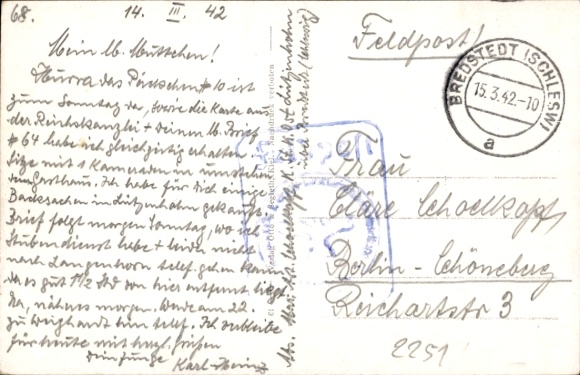 68.
14. III. 42
Mein lb. Muttchen!
Hurra das Päckchen # 10 ist
zum Sonntag da, sowie die Karte aus
der Reichskanzlei + Deinen lb. Brief
# 64 habe ich gleichzeitig erhalten.
Sitze mit 1 Kameraden in
Gasthaus. Ich habe für Dich einige
Backsachen in Lütjenholm gekauft.
Brief folgt morgen Sonntag, wo ich
Stubendienst habe + leider nicht
nach Langenhorn telef. gehen kann
da es gut 1 1/2 Std von hier entfernt liegt
da, näheres morgen. Werde am 22.
zu Weighardt hin telef. Ich verbleibe
für heute mit herzl. Grüßen
Dein Junge
Karl-Heinz
Lütjenholm
über Bredstedt (Schleswig)
Nachdruck verboten
Feldpost!
BREDSTEDT (SCHLESW)
15.3.42.-10
a
Frau
Cläre Schoelkopf
Berlin-Schöneberg
Reichartstr 3
2251